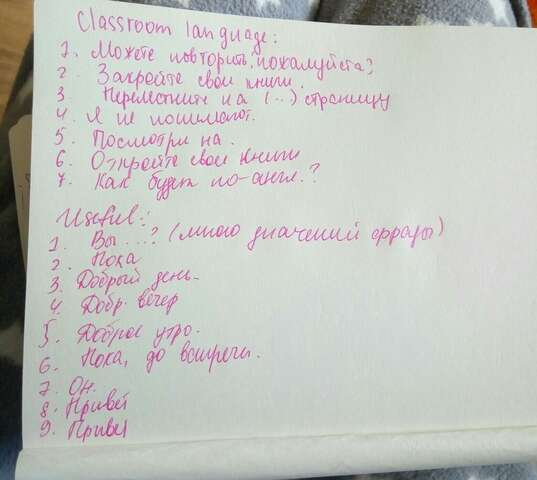 Classroom language:
1. Можете повторить, пожалуйста?
2. Закройте свои книги.
3. Перелестните на (...) страницу
4. Я не понимают.
5. Посмотри на.
6. Откройте свои книги
7. Как будет по-англ.?
Useful:
1. Вы ...? (много значений фразы)
2. Пока
3. Добрый день.
4. Добр. вечер
5. Доброе утро.
6. Пока, до встречи.
7. Он.
8. Привет
9. Привет